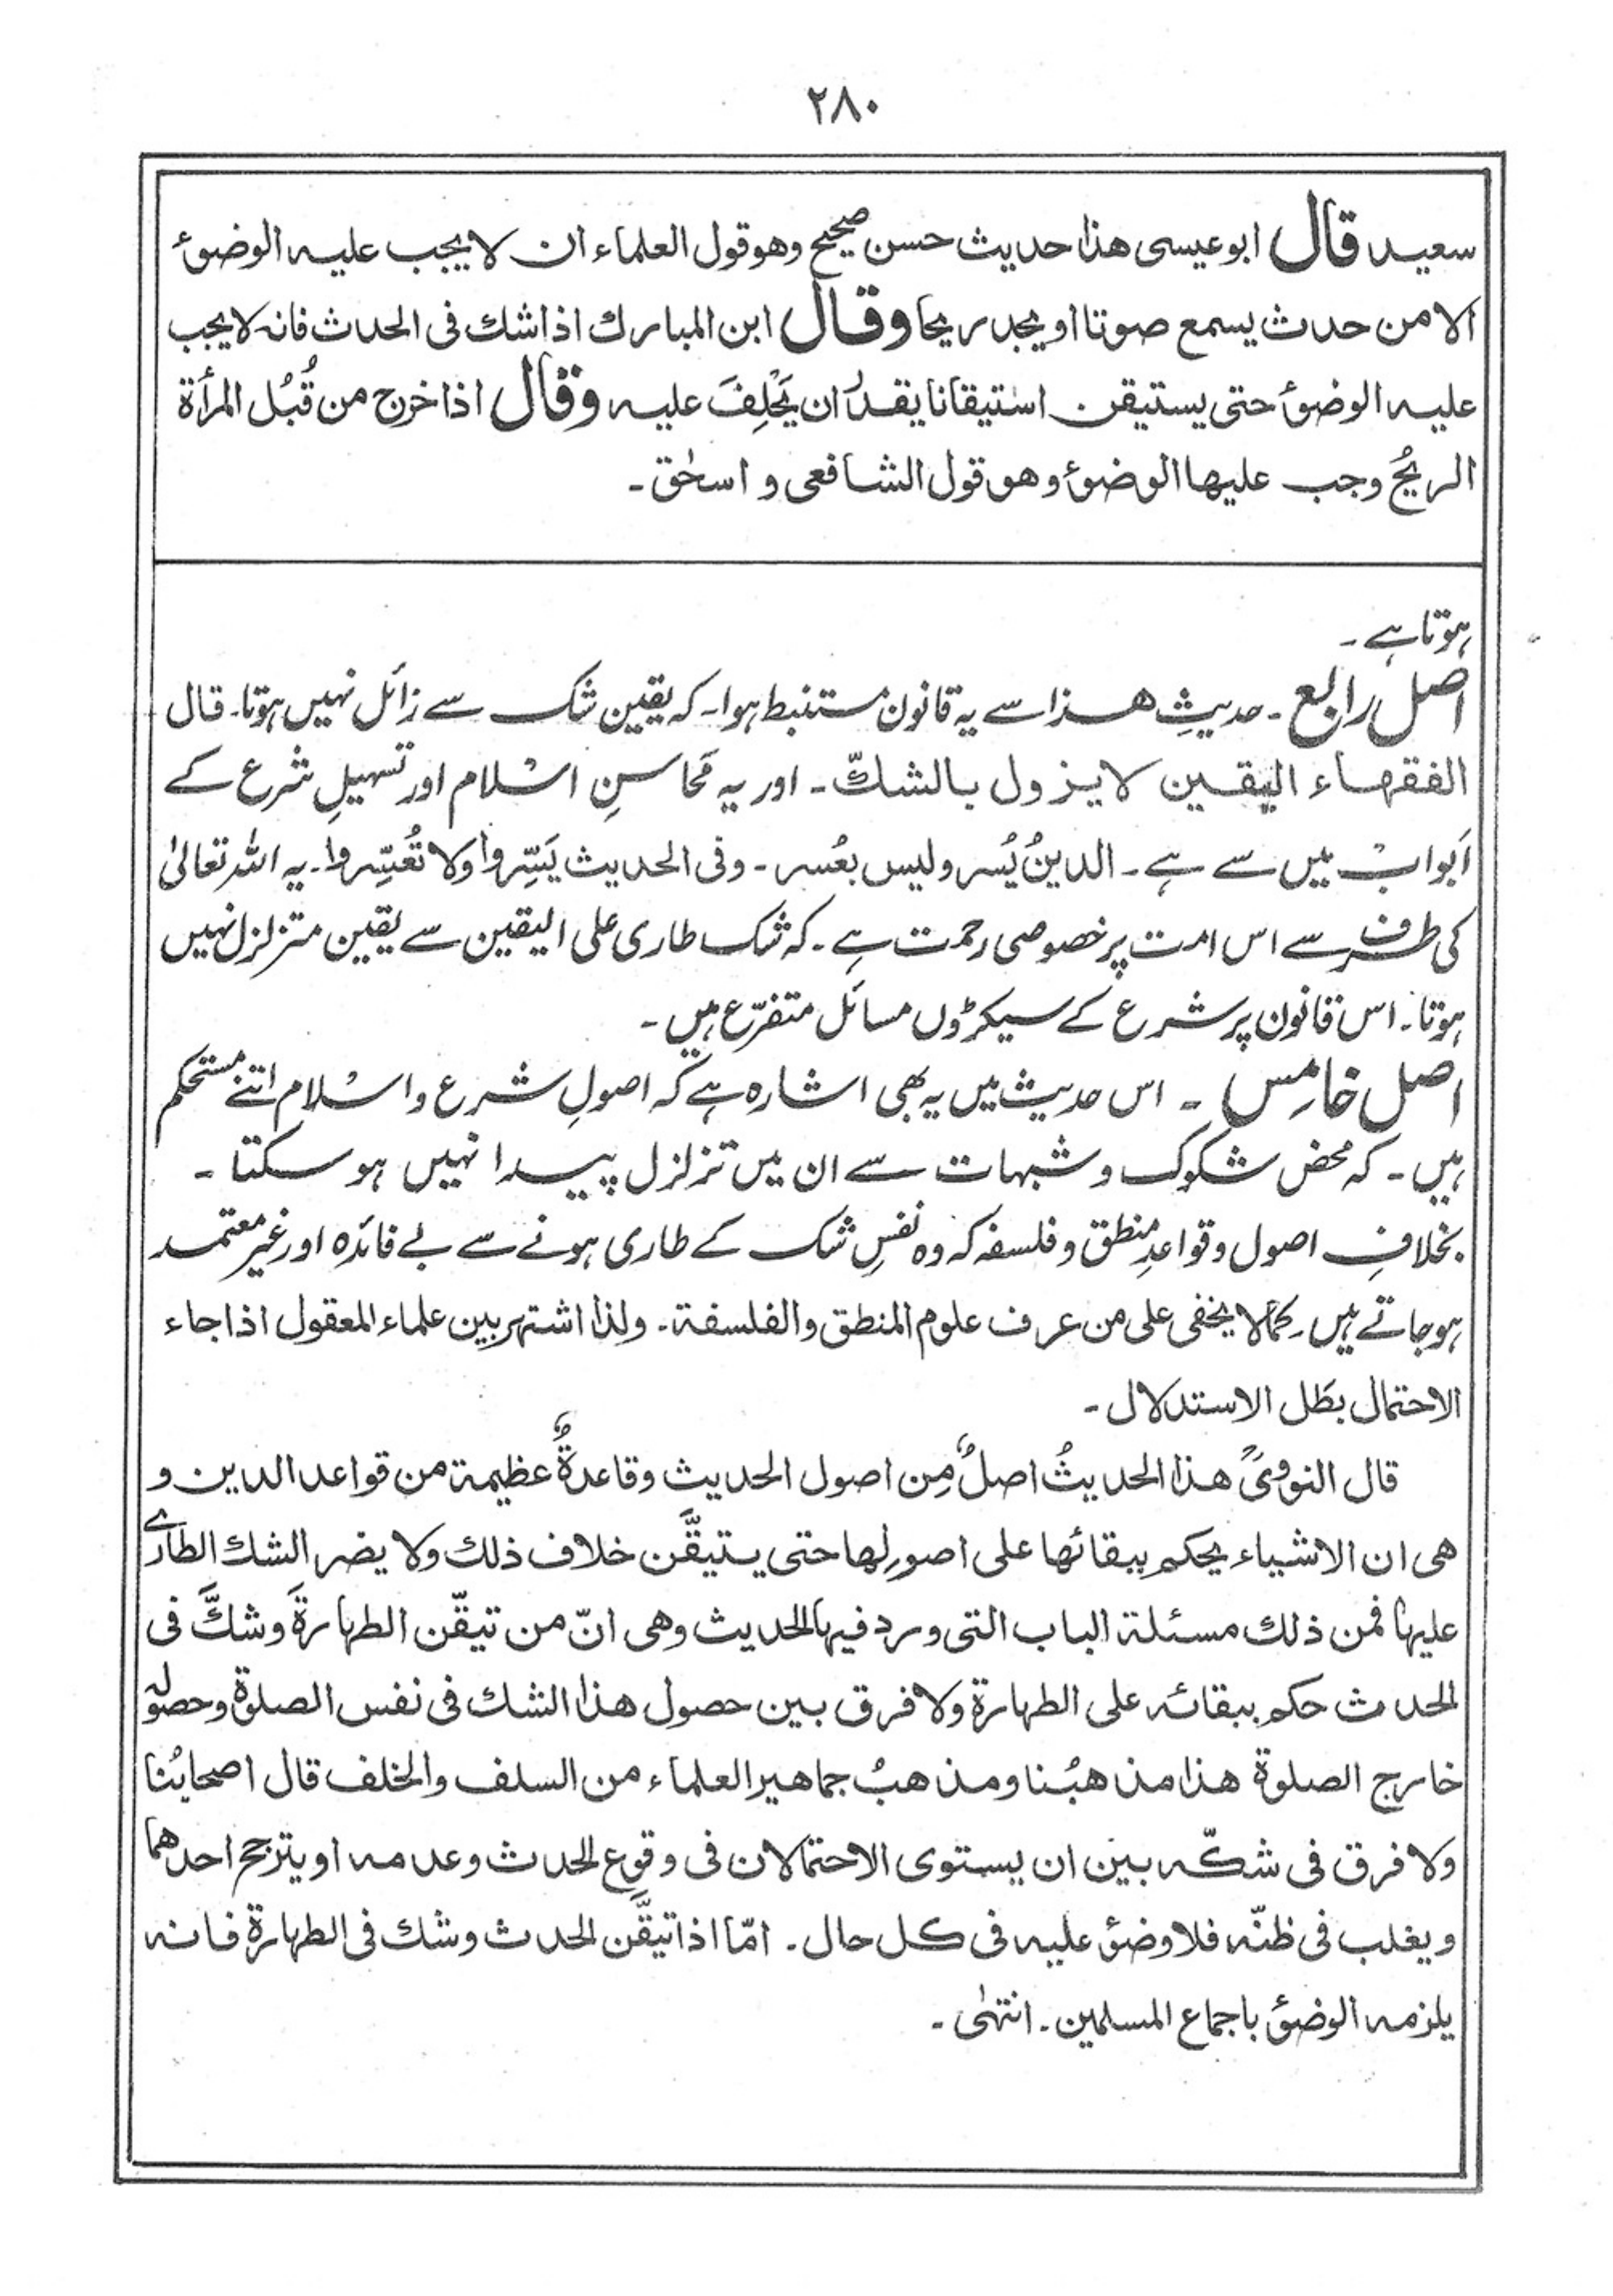 ۲۸۰
سعید قال ابوعیسی هذا حدیث حسن صحیح وهو قول العلماء ان لا یجب علیه الوضوءُ
الا من حدث یسمع صوتا او یجد ریحا وقال ابن المبارك اذا شك فی الحدث فانه لا یجب
علیه الوضوءُ حتی یستیقن استیقانا یقدرُ ان یَحْلِفَ علیه وقال اذا خرج من قُبُل المرأة
الریحُ وجب علیها الوضوءُ وهو قول الشافعی و اسحٰق ۔
ہوتا ہے ۔
اصل رابع ۔ حدیثِ ھذا سے یہ قانون مستنبط ہوا۔ کہ یقین شک سے زائل نہیں ہوتا۔ قال
الفقہاء الیقین لا یزول بالشكّ ۔ اور یہ مَحاسنِ اسلام اور تسہیلِ شرع کے
اَبواب میں سے ہے ۔ الدینُ یُسر ولیس بعُسر ۔ وفی الحدیث یَسِّروا ولا تُعَسِّروا۔ یہ اللہ تعالیٰ
کی طرف سے اس امت پر خصوصی رحمت ہے ۔ کہ شک طاری علی الیقین سے یقین متزلزل نہیں
ہوتا۔ اس قانون پر شرع کے سیکڑوں مسائل متفرّع ہیں ۔
اصل خامِس ۔ اس حدیث میں یہ بھی اشارہ ہے کہ اصولِ شرع و اسلام اتنے مستحکم
ہیں ۔ کہ محض شکوک و شبہات سے ان میں تزلزل پیدا نہیں ہو سکتا ۔
بخلافِ اصول و قواعدِ منطق و فلسفہ کہ وہ نفسِ شک کے طاری ہونے سے بے فائدہ اور غیر معتمد
ہو جاتے ہیں۔ کما لا یخفی علی من عرف علوم المنطق والفلسفة ۔ ولذا اشتہر بین علماء المعقول اذا جاء
الاحتمال بطَل الاستدلال ۔
قال النوویؒ هذا الحدیثُ اصلٌ مِن اصول الحدیث وقاعدةٌ عظیمة من قواعد الدین و
هی ان الاشیاء یحکم ببقائها علی اصولِها حتی یتیقَّن خلاف ذلك ولا یضر الشك الطارئ
علیها فمن ذلك مسئلة الباب التی ورد فیها الحدیث وهی انّ من تیقّن الطهارةَ وشكَّ فی
الحدث حکم ببقائه علی الطهارة ولا فرق بین حصول هذا الشك فی نفس الصلوة وحصوله
خارج الصلوة هذا مذهبُنا ومذهبُ جماهیر العلماء من السلف والخلف قال اصحابُنا
ولا فرق فی شكّه بین ان یستوی الاحتمالان فی وقوع الحدث وعدمه او یترجح احدهما
ویغلب فی ظنّه فلا وضوءَ علیه فی کل حال ۔ امّا اذا تیقَّن الحدث وشك فی الطهارة فانه
یلزمه الوضوءُ باجماع المسلمین ۔ انتهٰی ۔